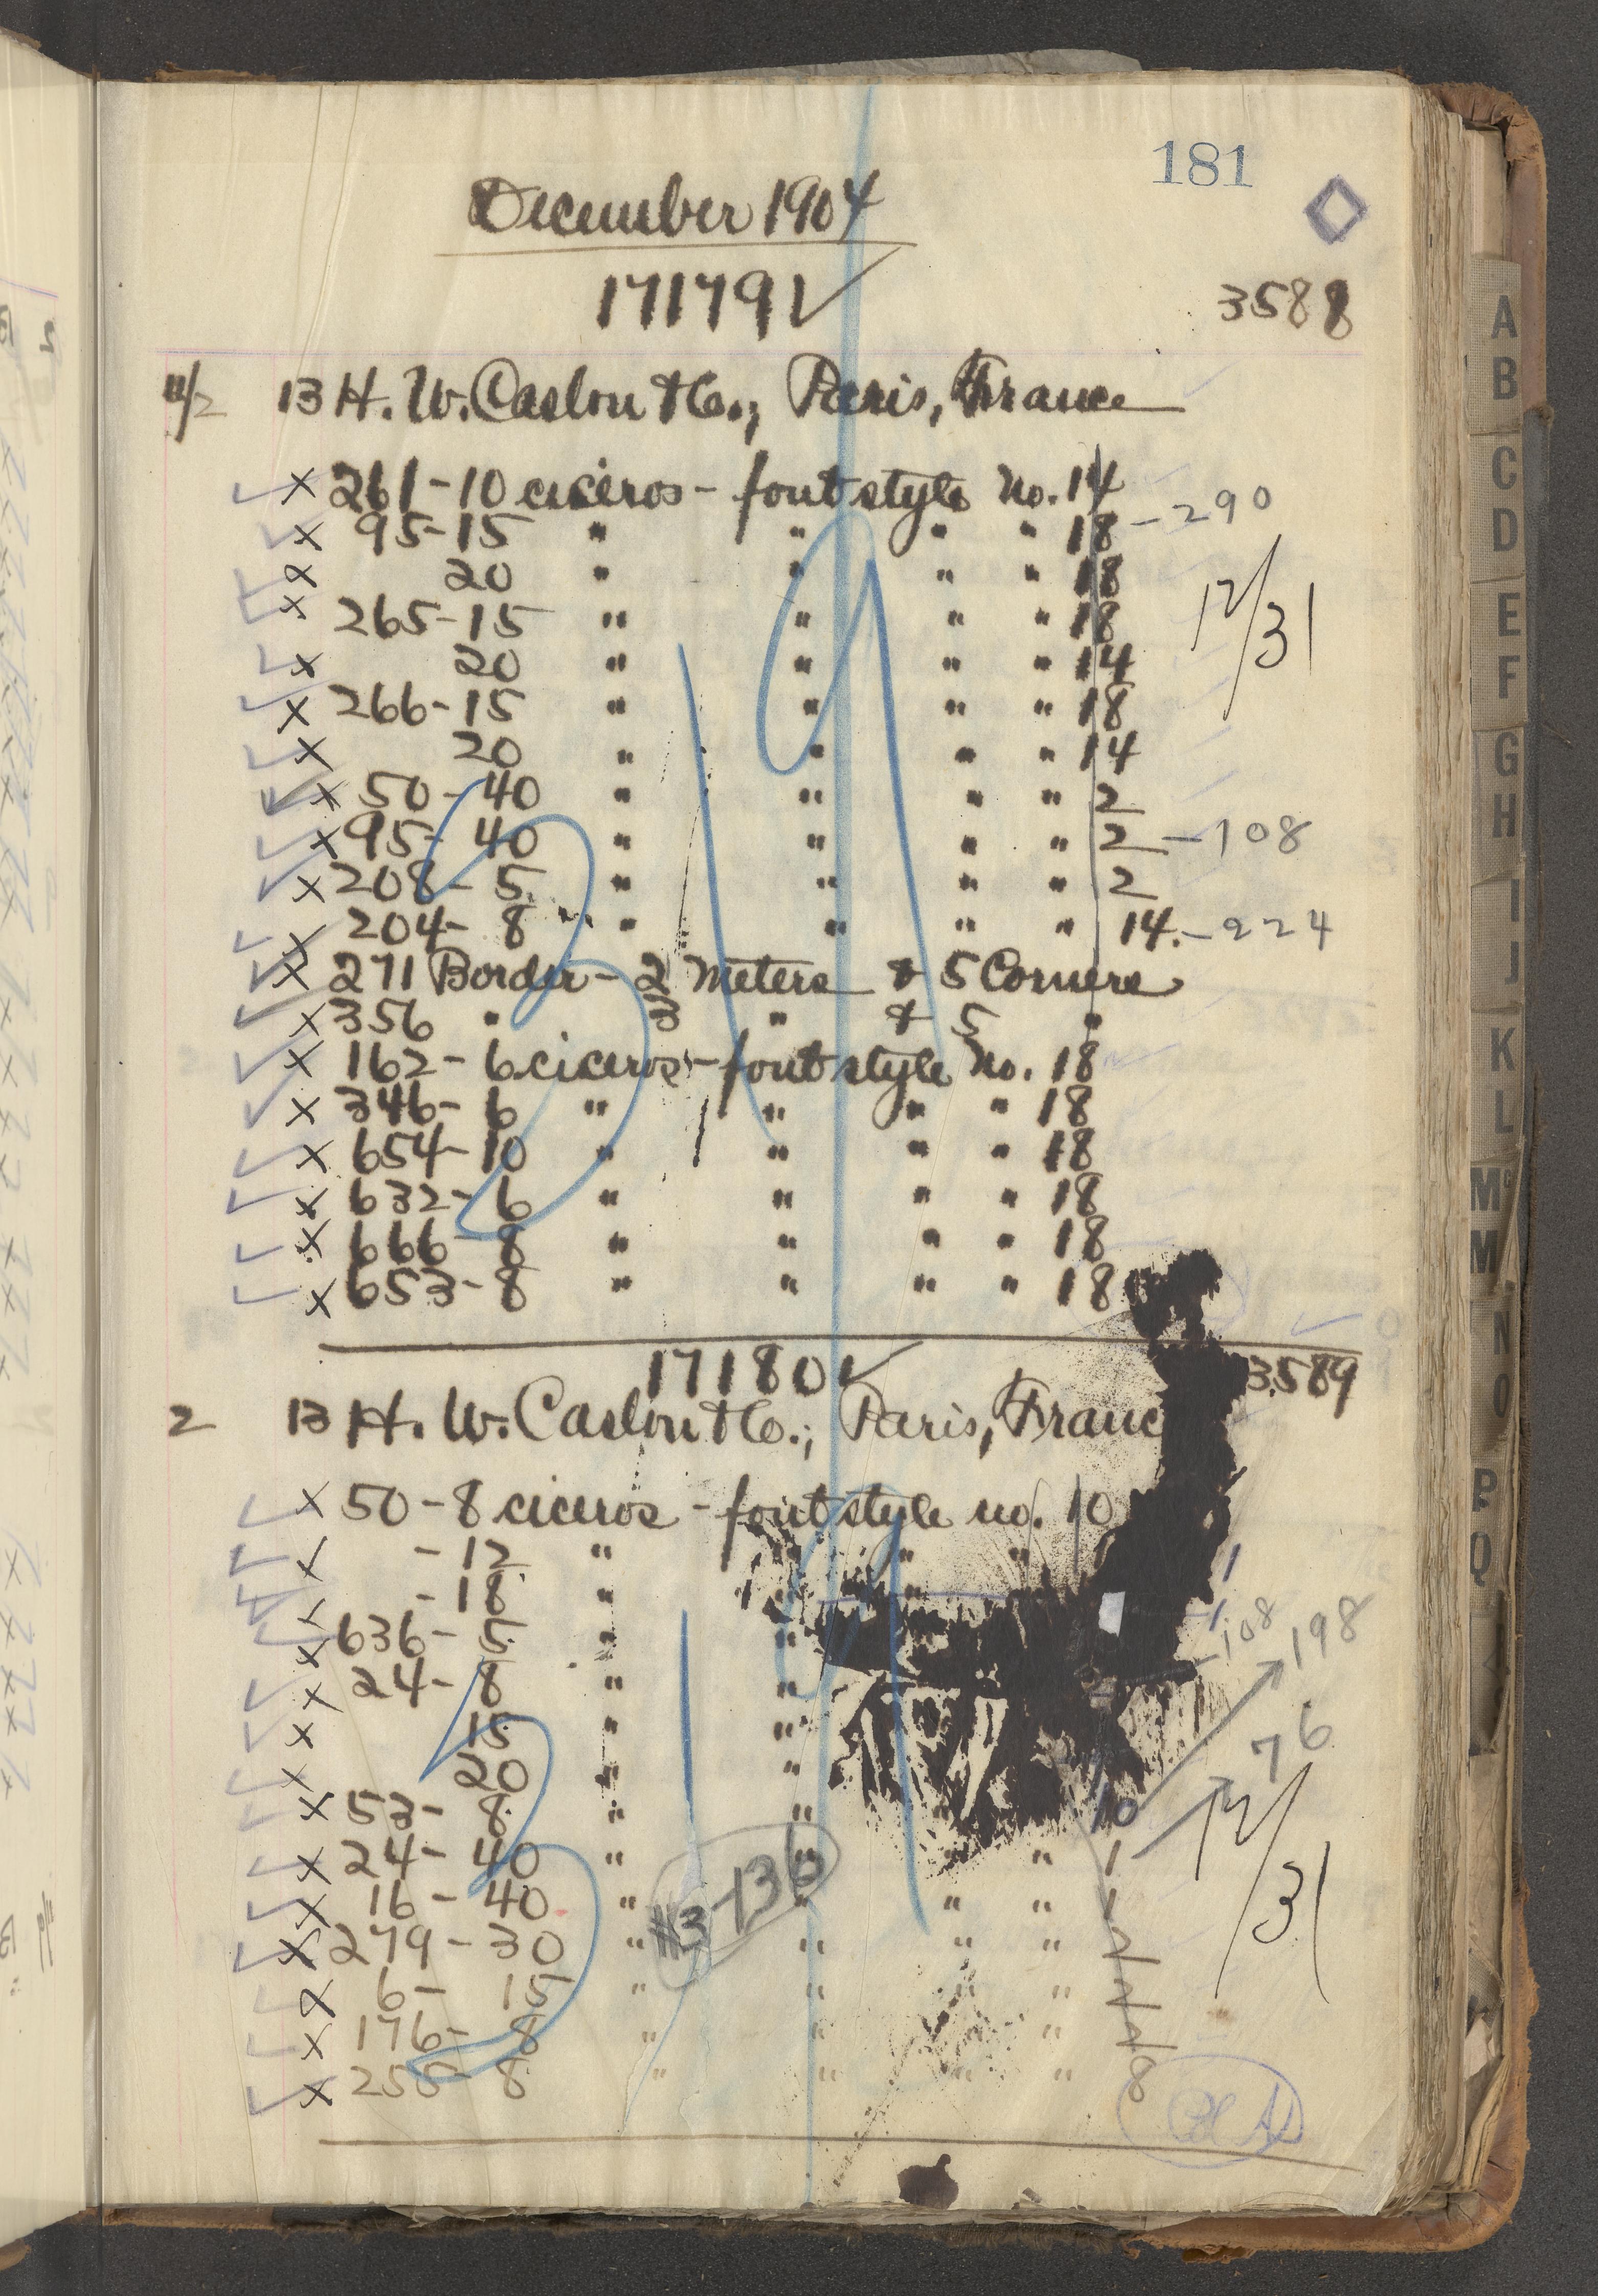 181
December 1904
171791 ✓
3588
11/2 13 H. W. Caslon & Co., Paris, France
✓ × 261 - 10 ciceros - font style No. 14
✓ × 95 - 15 " " " " 18 - 290
✓ × 20 " " " " 18
✓ × 265 - 15 " " " " 18
12/31
✓ × 20 " " " " 14
✓ × 266 - 15 " " " " 18
✓ × 20 " " " " 14
✓ × 50 - 40 " " " " 2
✓ × 95 - 40 " " " " 2 - 108
✓ × 208 - 5 " " " " 2
✓ × 204 - 8 " " " " 14. - 224
✓ × 271 Border - 2 Meters & 5 Corners
✓ × 356 " " & 5 "
✓ × 162 - 6 ciceros - font style No. 18
✓ × 346 - 6 " " " " 18
✓ × 654 - 10 " " " " 18
✓ × 632 - 6 " " " " 18
✓ × 666 - 8 " " " " 18
✓ × 653 - 8 " " " " 18
17180 ✓
3589
2 13 H. W. Caslon & Co., Paris, Franc
✓ × 50 - 8 ciceros - font style no. 10
✓ × - 12 " " " "
✓ × - 18 " " "
✓ × 636 - 5 " "
- 108
✓ × 24 - 8 " "
198
✓ × 15 " "
76
✓ × 20 " "
✓ × 53 - 8 " " 10
✓ × 24 - 40 " " " " 1
12/31
#3-136
✓ × 16 - 40 " " " " 1
✓ × 279 - 30 " " " " 2
✓ × 6 - 15 " " " " 2
✓ × 176 - 8 " " " " 2
✓ × 250 - 8 " " " " 18
A
B
C
D
E
F
G
H
I
J
K
L
Mc
M
N
O
P
Q